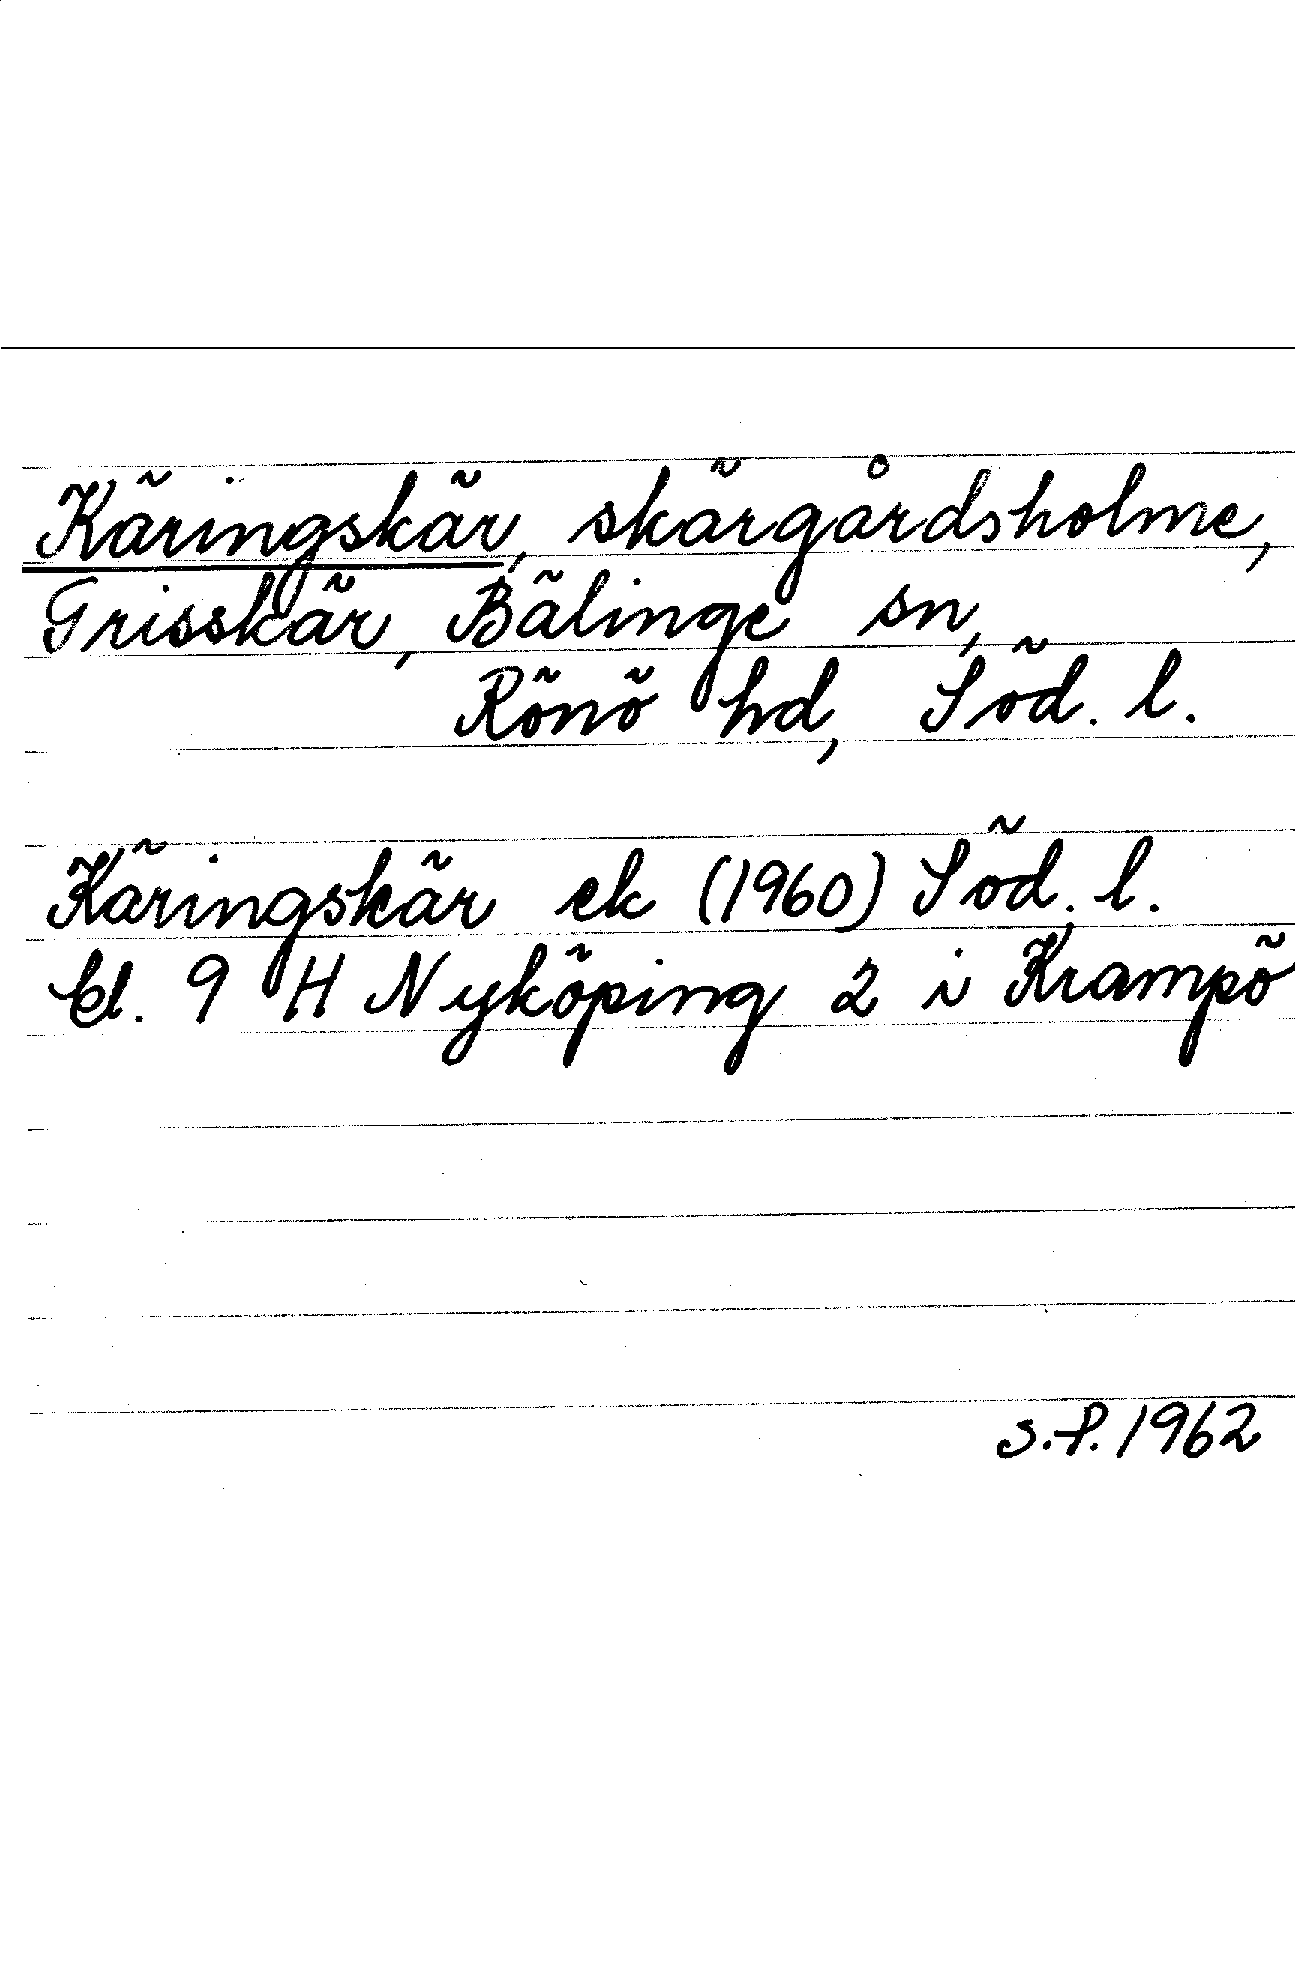 Käringskär, skärgårdsholme,
Grisskär, Bälinge sn,
Rönö hd, Söd. l.
Käringskär ek (1960) Söd. l.
bl. 9 H Nyköping 2 i Krampö
S.P. 1962